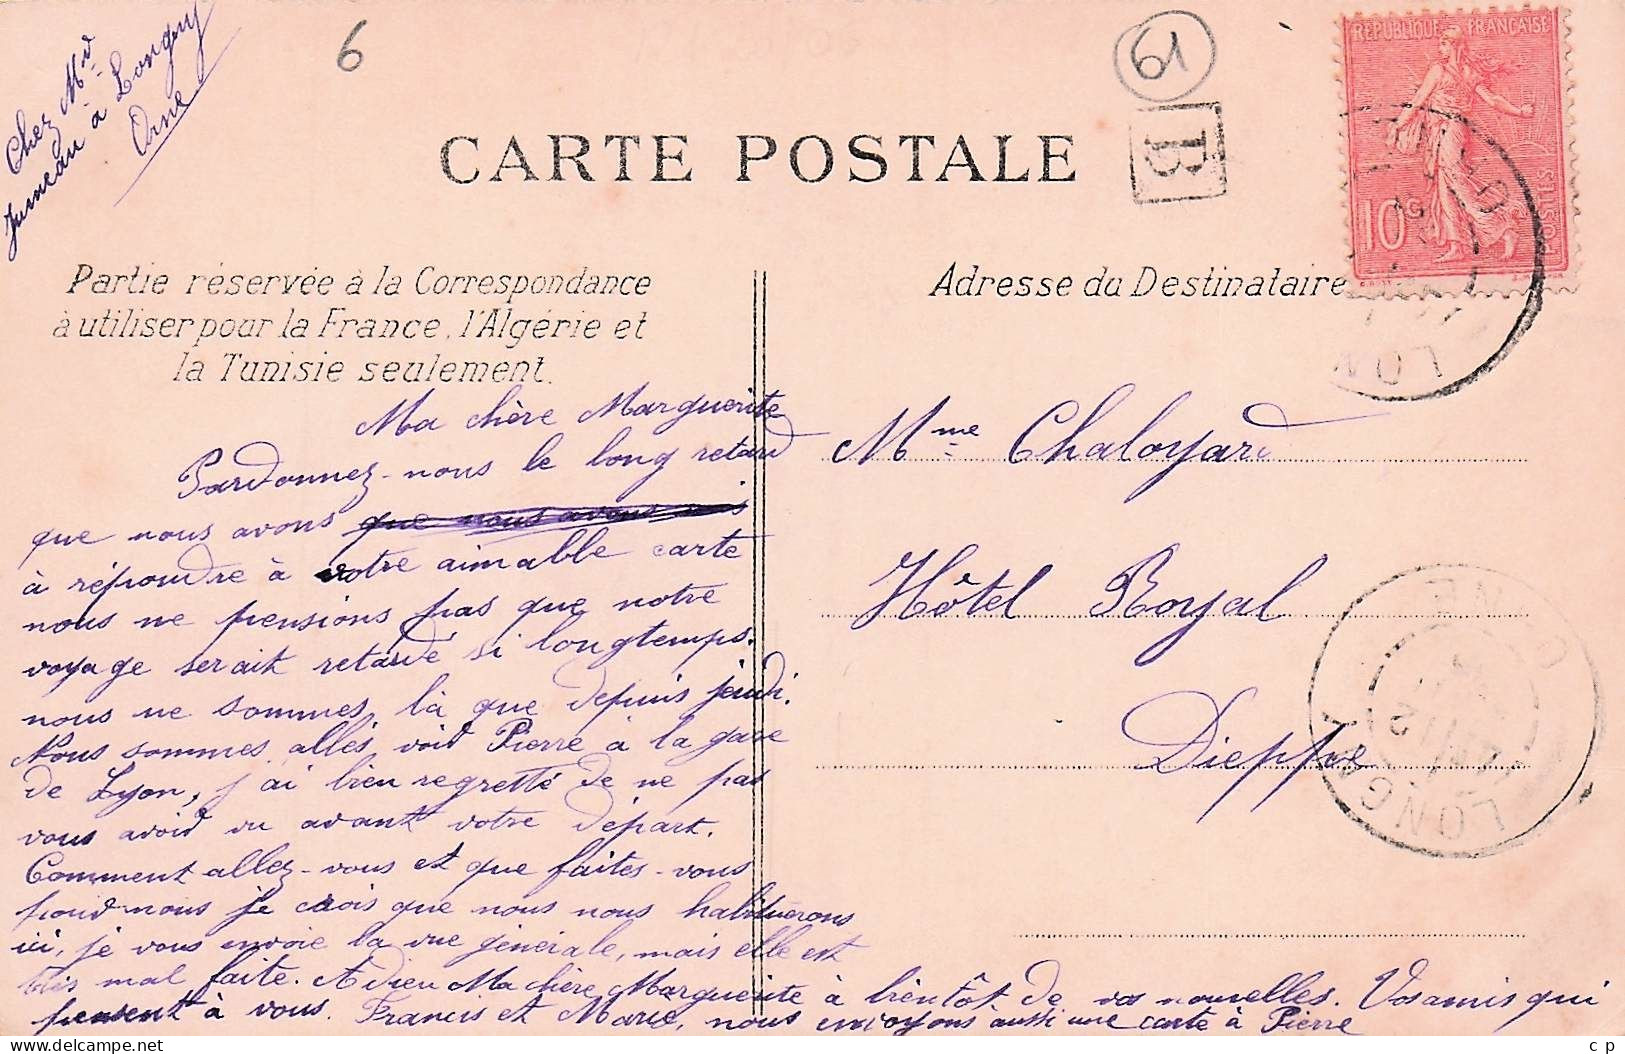 Chez Md
Jumeau à Longny
Orne
6
61
B
RÉPUBLIQUE FRANÇAISE
10
POSTES
CARTE POSTALE
Partie réservée à la Correspondance
à utiliser pour la France, l'Algérie et
la Tunisie seulement.
Adresse du Destinataire
Ma chère Marguerite
Pardonnez-nous le long retard
que nous avons que nous avons mis
à répondre à votre aimable carte
nous ne pensions pas que notre
voyage serait retardé si longtemps.
nous ne sommes là que depuis jeudi.
Nous sommes allés voir Pierre à la gare
de Lyon, j'ai bien regretté de ne pas
vous avoir vu avant votre départ.
Comment allez-vous et que faites-vous
pour nous je crois que nous nous habituerons
ici, je vous envoie la vue générale, mais elle est
très mal faite. Adieu Ma chère Marguerite à bientôt de vos nouvelles. Vos amis qui
pensent à vous. Francis et Marie, nous envoyons aussi une carte à Pierre
Mme Chaloyard
Hôtel Royal
Dieppe
LONGNY
ORNE
c p